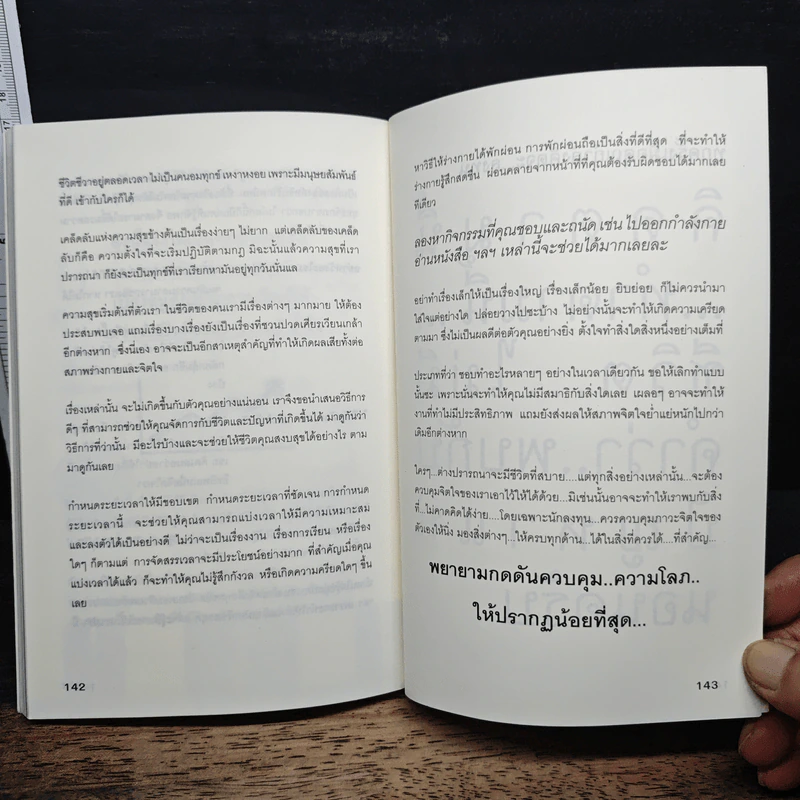 ชีวิตชีวาอยู่ตลอดเวลา ไม่เป็นคนอมทุกข์ เหงาหงอย เพราะมีมนุษยสัมพันธ์
ที่ดี เข้ากับใครก็ได้
เคล็ดลับแห่งความสุขข้างต้นเป็นเรื่องง่ายๆ ไม่ยาก แต่เคล็ดลับของเคล็ด
ลับก็คือ ความตั้งใจที่จะเริ่มปฏิบัติตามกฎ มิฉะนั้นแล้วความสุขที่เรา
ปรารถนา ก็ยังจะเป็นทุกข์ที่เราเรียกหามันอยู่ทุกวันนั่นแล
ความสุขเริ่มต้นที่ตัวเรา ในชีวิตของคนเรามีเรื่องต่างๆ มากมาย ให้ต้อง
ประสบพบเจอ แถมเรื่องบางเรื่องยังเป็นเรื่องที่ชวนปวดเศียรเวียนเกล้า
อีกต่างหาก ซึ่งนี่เอง อาจจะเป็นอีกสาเหตุสำคัญที่ทำให้เกิดผลเสียทั้งต่อ
สภาพร่างกายและจิตใจ
เรื่องเหล่านั้น จะไม่เกิดขึ้นกับตัวคุณอย่างแน่นอน เราจึงขอนำเสนอวิธีการ
ดีๆ ที่สามารถช่วยให้คุณจัดการกับชีวิตและปัญหาที่เกิดขึ้นได้ มาดูกันว่า
วิธีการที่ว่านั้น มีอะไรบ้างและจะช่วยให้ชีวิตคุณสงบสุขได้อย่างไร ตาม
มาดูกันเลย
กำหนดระยะเวลาให้มีขอบเขต กำหนดระยะเวลาที่ชัดเจน การกำหนด
ระยะเวลานี้ จะช่วยให้คุณสามารถแบ่งเวลาให้มีความเหมาะสม
และลงตัวได้เป็นอย่างดี ไม่ว่าจะเป็นเรื่องงาน เรื่องการเรียน หรือเรื่อง
ใดๆ ก็ตามแต่ การจัดสรรเวลาจะมีประโยชน์อย่างมาก ที่สำคัญเมื่อคุณ
แบ่งเวลาได้แล้ว ก็จะทำให้คุณไม่รู้สึกกังวล หรือเกิดความเครียดใดๆ ขึ้น
เลย
142
หาวิธีให้ร่างกายได้พักผ่อน การพักผ่อนถือเป็นสิ่งที่ดีที่สุด ที่จะทำให้
ร่างกายรู้สึกสดชื่น ผ่อนคลายจากหน้าที่ที่คุณต้องรับผิดชอบได้มากเลย
ทีเดียว
ลองหากิจกรรมที่คุณชอบและถนัด เช่น ไปออกกำลังกาย
อ่านหนังสือ ฯลฯ เหล่านี้จะช่วยได้มากเลยละ
อย่าทำเรื่องเล็กให้เป็นเรื่องใหญ่ เรื่องเล็กน้อย ยิบย่อย ก็ไม่ควรนำมา
ใส่ใจแต่อย่างใด ปล่อยวางไปซะบ้าง ไม่อย่างนั้นจะทำให้เกิดความเครียด
ตามมา ซึ่งไม่เป็นผลดีต่อตัวคุณอย่างยิ่ง ตั้งใจทำสิ่งใดสิ่งหนึ่งอย่างเต็มที่
ประเภทที่ว่า ชอบทำอะไรหลายๆ อย่างในเวลาเดียวกัน ขอให้เลิกทำแบบ
นั้นซะ เพราะนั่นจะทำให้คุณไม่มีสมาธิกับสิ่งใดเลย เผลอๆ อาจจะทำให้
งานที่ทำไม่มีประสิทธิภาพ แถมยังส่งผลให้สภาพจิตใจย่ำแย่หนักไปกว่า
เดิมอีกต่างหาก
ใครๆ...ต่างปรารถนาจะมีชีวิตที่สบาย....แต่ทุกสิ่งอย่างเหล่านั้น...จะต้อง
ควบคุมจิตใจของเราเอาไว้ให้ได้ด้วย...มิเช่นนั้นอาจจะทำให้เราพบกับสิ่ง
ที่...ไม่คาดคิดได้ง่าย....โดยเฉพาะนักลงทุน...ควรควบคุมภาวะจิตใจของ
ตัวเองให้นิ่ง มองสิ่งต่างๆ...ให้ครบทุกด้าน...ได้ในสิ่งที่ควรได้...ที่สำคัญ...
พยายามกดดันควบคุม..ความโลภ..
ให้ปรากฏน้อยที่สุด...
143